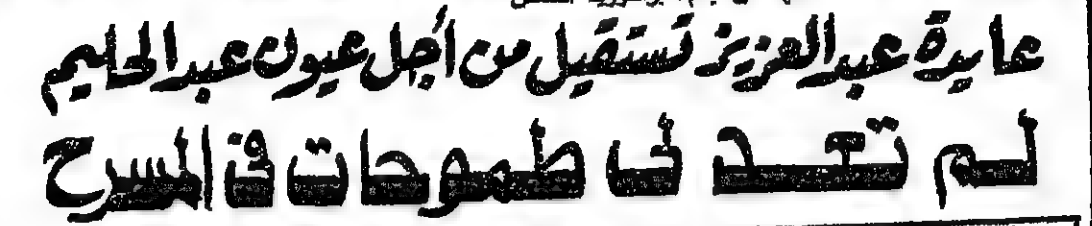 عايدة عبدالعزيز تستقيل من أجل عيون عبدالحليم
لم تعد لى طموحات فى المسرح